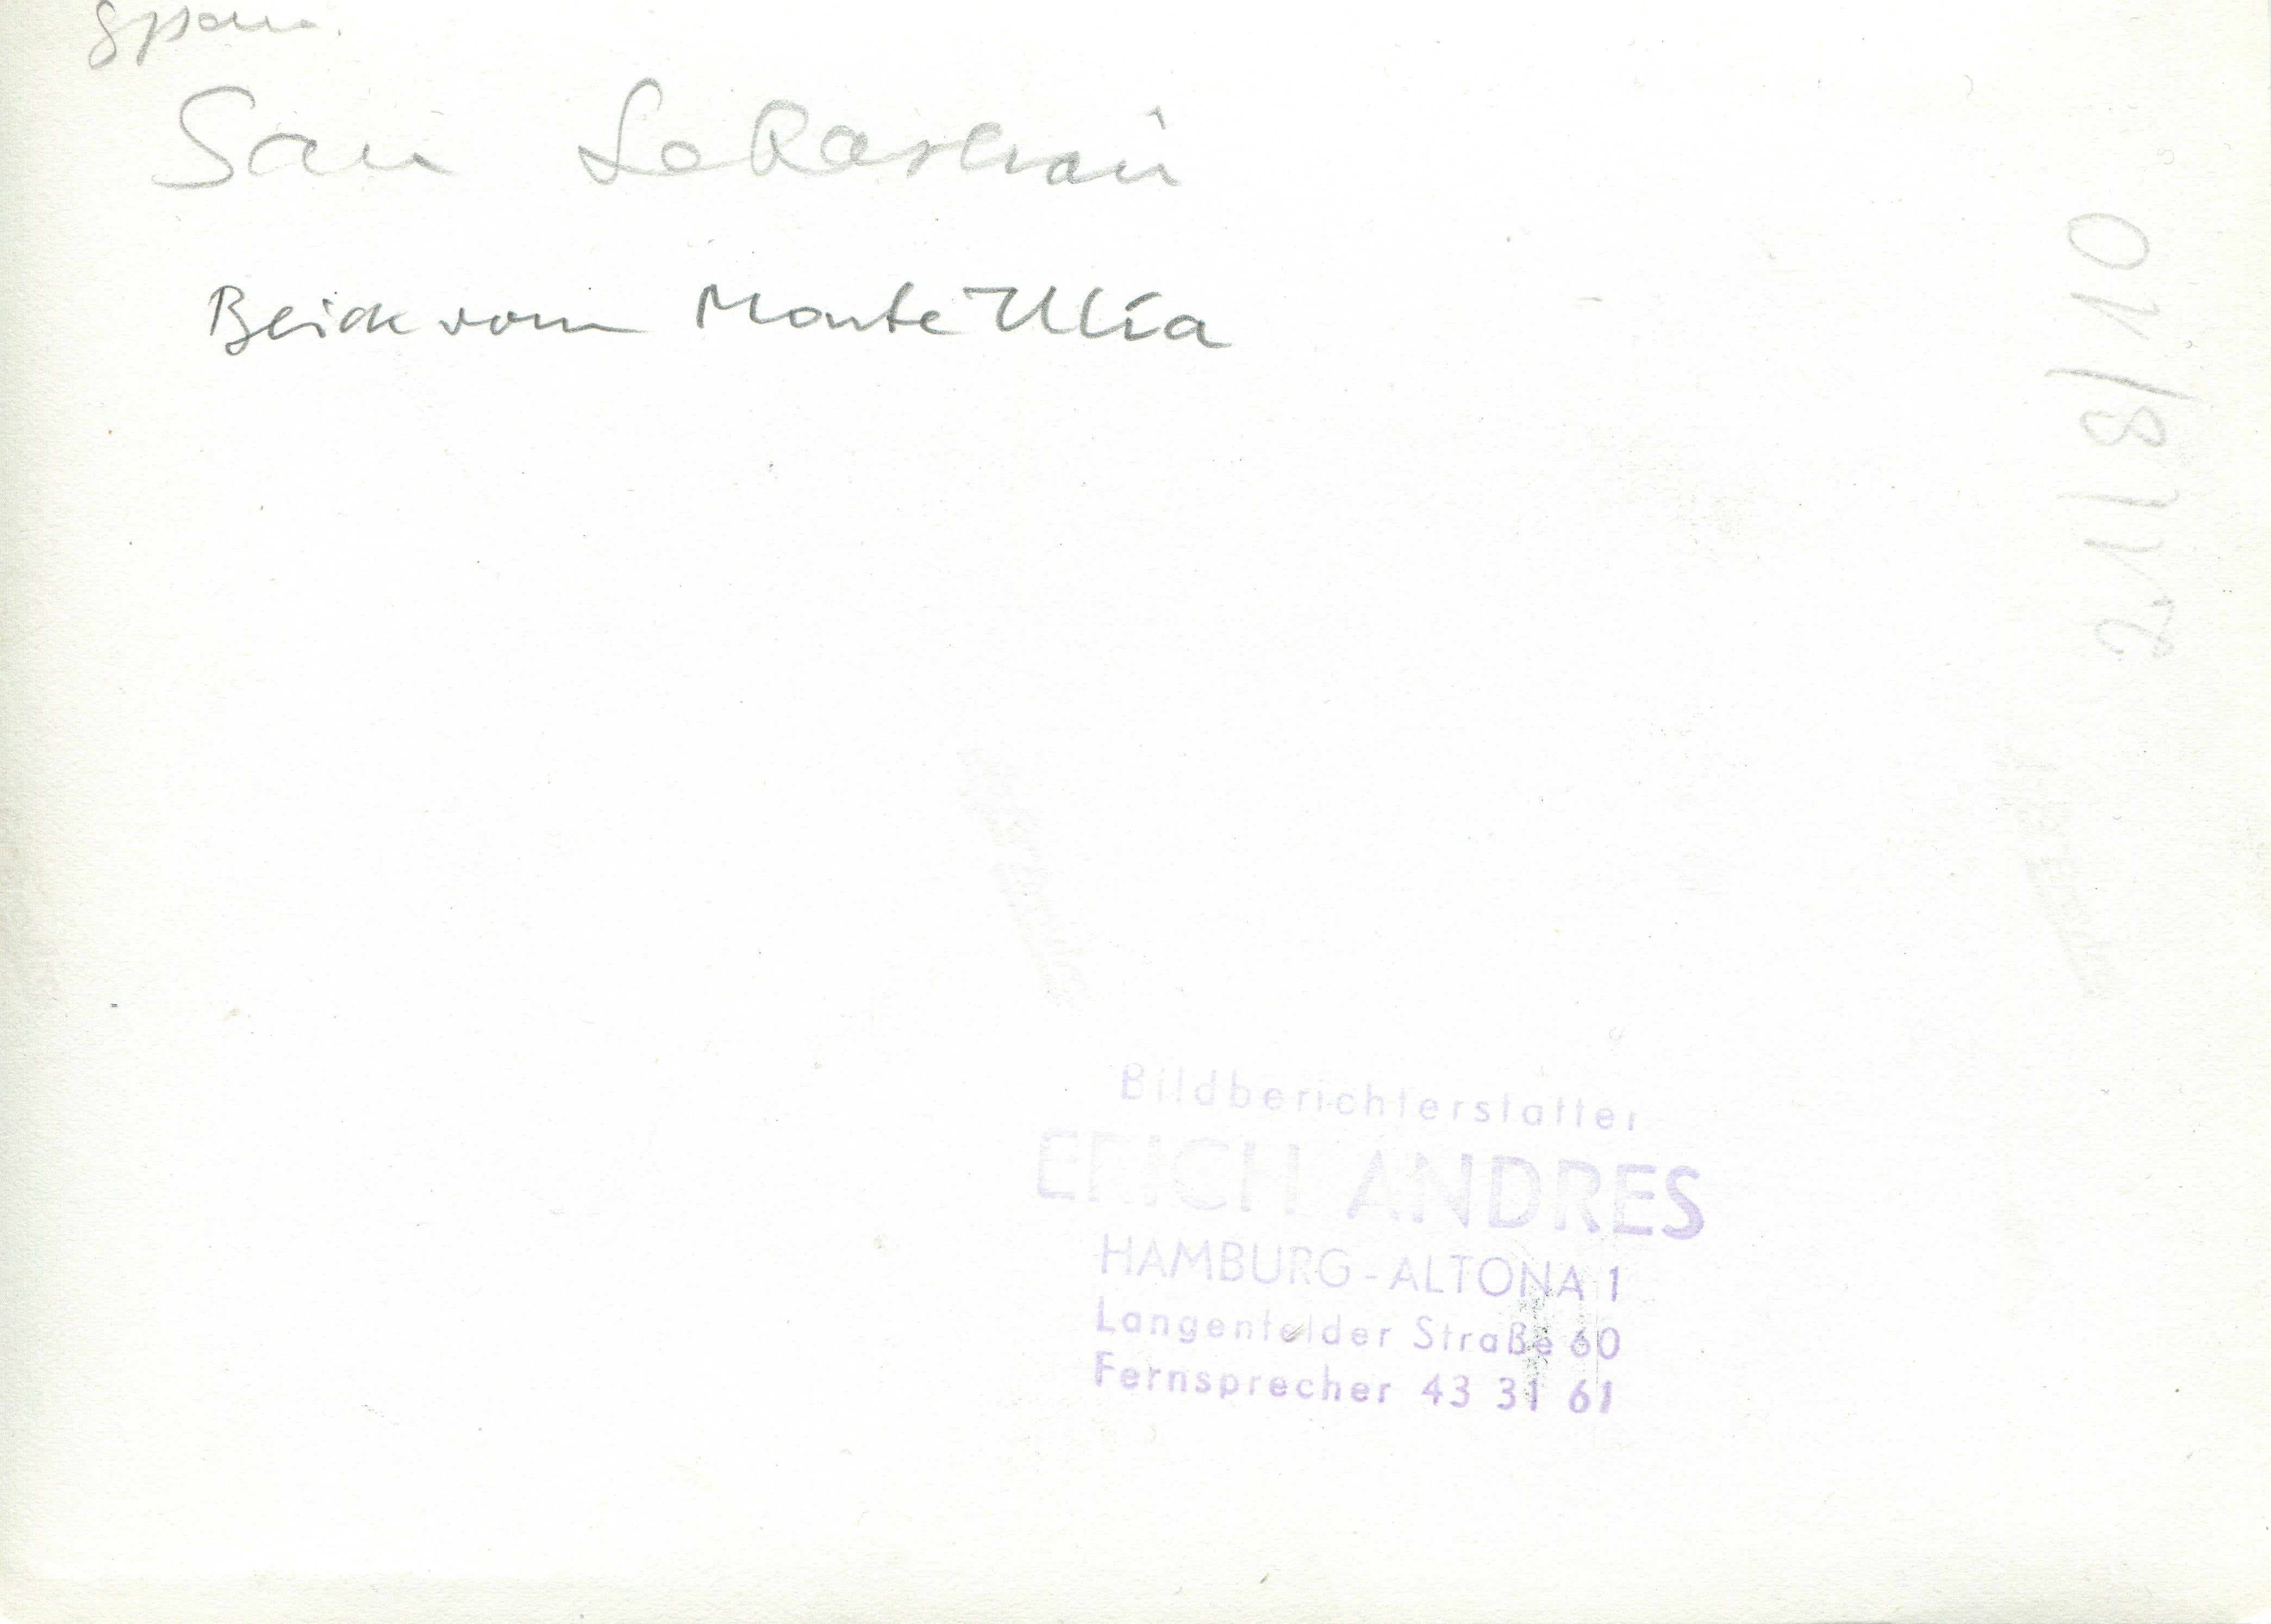 Span.
San Sebastián
Blick vom Monte Ulía
2118/10
Bildberichterstatter
ERICH ANDRES
HAMBURG-ALTONA 1
Langenfelder Straße 60
Fernsprecher 43 31 61